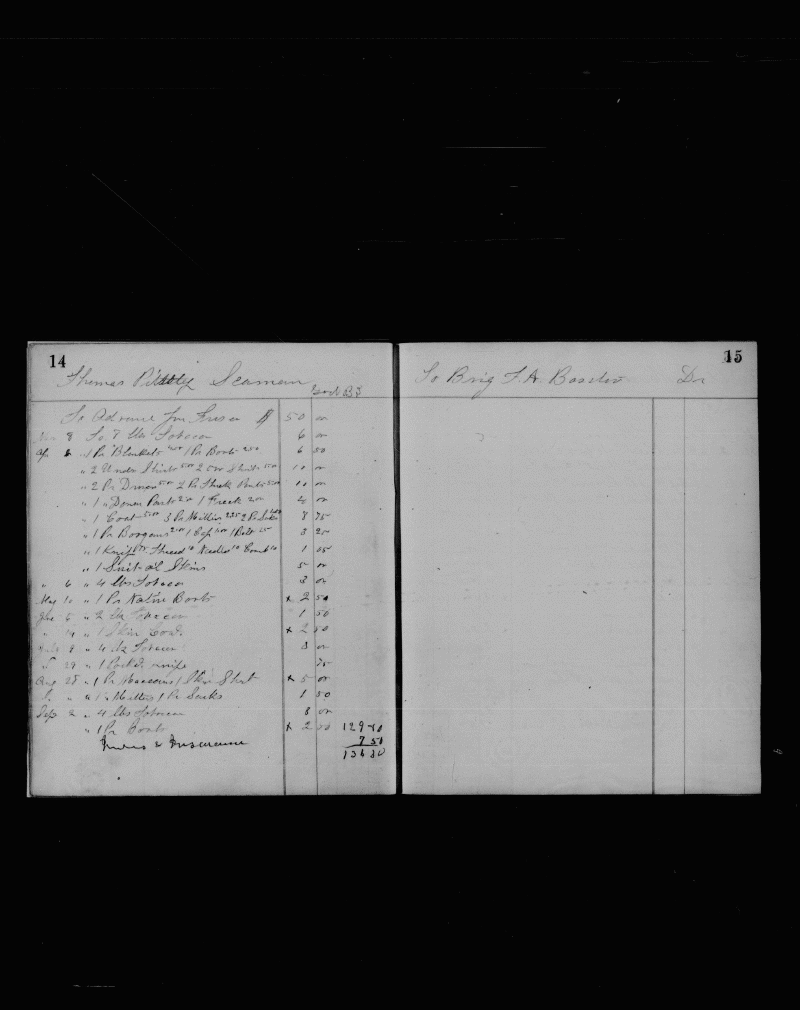 14
Thomas Seaman
To Advance $ 50 00
8 To Lbs Tobacco 6 00
Apr " 1 Pr Blankets 1 Pr Boots 2 50 6 50
" 2 Under Shirts 5 00 2 Over Shirts 10 00
" 2 Pr Drawers 5 00 2 Pr Thick Pants 5 00 10 00
" 1 " Pants 2 00 1 Frock 2 00 4 00
" 1 Coat 5 00 3 Pr Mittins 2 25 2 Pr Socks 8 75
" 1 Pr Brogans 2 00 1 Cap 1 00 1 Belt 25 3 25
" 1 Knife 75 Thread 10 Needles 10 Comb 10 1 05
" 1 Suit oil Skins 5 00
" 6 " 4 lbs Tobacco 3 00
May 10 " 1 Pr Native Boots x 2 50
June 5 " 2 Lbs Tobacco 1 50
" 14 " 1 Skin x 2 50
July 9 " 4 Lbs Tobacco 3 00
" 29 " 1 Pocket knife 75
Aug 28 " 1 Pr 1 Skin Shirt x 5 00
" " 1 " Mittens 1 Pr Socks 1 50
Sep 2 " 4 lbs Tobacco 3 00
" 1 Pr Boots x 2 50 129
& Insurance 7 50
136
15
To Brig F. A. Dr